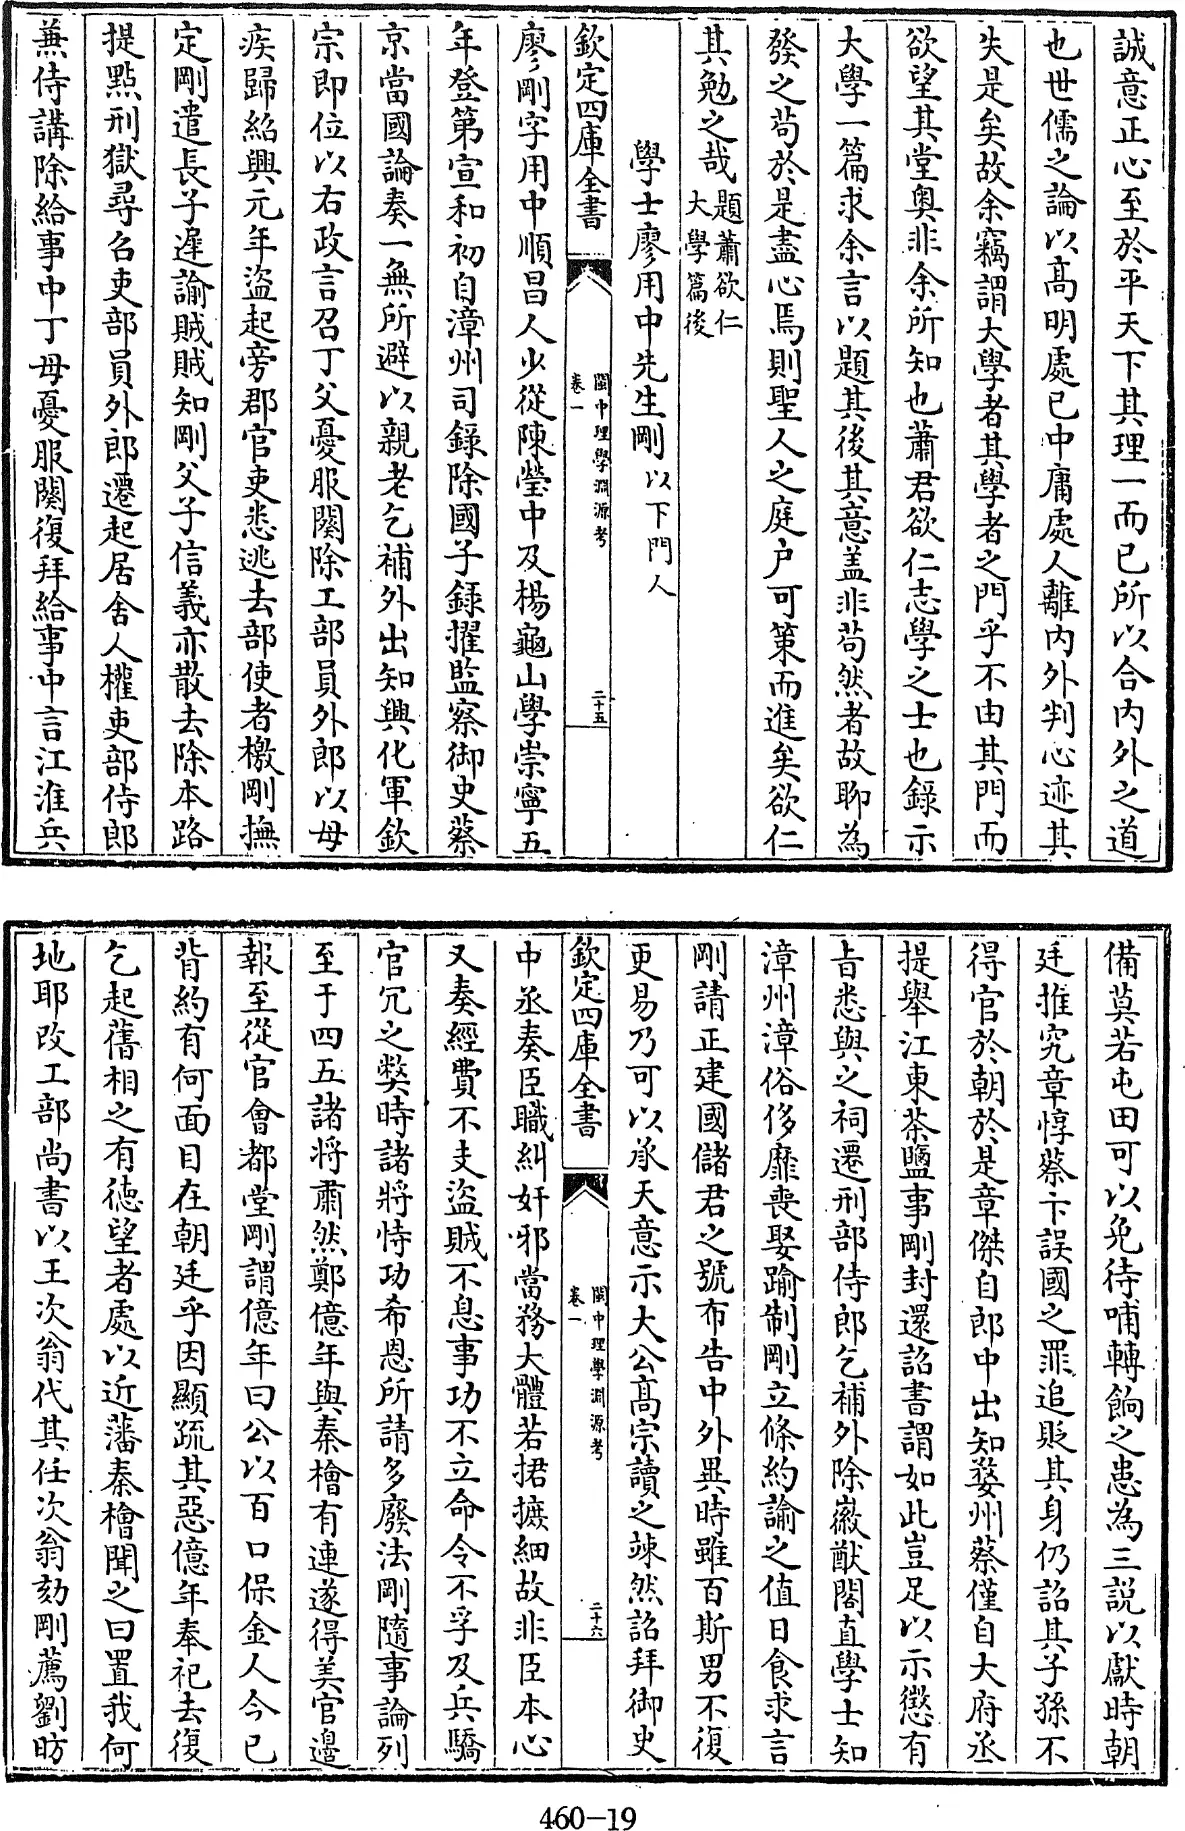 誠意正心至於平天下其理一而已所以合内外之道
也世儒之論以髙明處已中庸處人離内外判心迹其
失是矣故余竊謂大學者其學者之門乎不由其門而
欲望其堂奥非余所知也蕭君欲仁志學之士也錄示
大學一篇求余言以題其後其意盖非茍然者故聊為
發之茍於是盡心焉則聖人之庭户可第而進矣欲仁
其勉之哉題蕭欲仁大學篇後
學士廖用中先生剛以下門人
欽定四庫全書
閩中理學淵源考
卷一
二十五
廖剛字用中順昌人少從陳瑩中及楊龜山學崇寧五
年登第宣和初自漳州司錄除國子録擢監察御史蔡
京當國論奏一無所避以親老乞補外出知興化軍欽
宗即位以右政言召丁父憂服闋除工部員外郎以母
疾歸紹興元年盜起旁郡官吏悉逃去部使者檄剛撫
定剛遣長子遲諭賊賊知剛父子信義亦散去除本路
提點刑獄尋召吏部員外郎遷起居舍人權吏部侍郎
兼侍講除給事中丁母憂服闋復拜給事中言江淮兵
備莫若屯田可以免待哺轉餉之患為三説以獻時朝
廷推究章惇蔡卞誤國之罪追貶其身仍詔其子孫不
得官於朝於是章傑自郎中出知婺州蔡僅自大府丞
提舉江東茶鹽事剛封還詔書謂如此豈足以示懲有
旨悉與之祠遷刑部侍郎乞補外除徽猷閣直學士知
漳州漳俗侈靡喪娶踰制剛立條約諭之值日食求言
剛請正建國儲君之號布告中外異時雖百斯男不復
更易乃可以承天意示大公髙宗讀之竦然詔拜御史
欽定四庫全書
閩中理學淵源考
卷一
二十六
中丞奏臣職糾奸邪當務大體若捃摭細故非臣本心
又奏經費不支盜賊不息事功不立命令不孚及兵驕
官冗之弊時諸將恃功希恩所請多廢法剛隨事論列
至于四五諸將肅然鄭億年與秦檜有連遂得美官邊
報至從官會都堂剛謂億年曰公以百口保金人今已
背約有何面目在朝廷乎因顯疏其惡億年奉祀去復
乞起舊相之有德望者處以近藩秦檜聞之曰置我何
地耶改工部尚書以王次翁代其任次翁劾剛薦劉昉
460-19